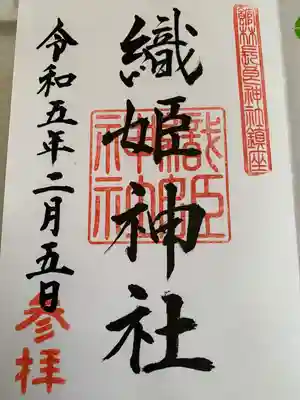 館林長良神社鎮座
織姫神社
織姫神社
令和五年二月五日
参拝